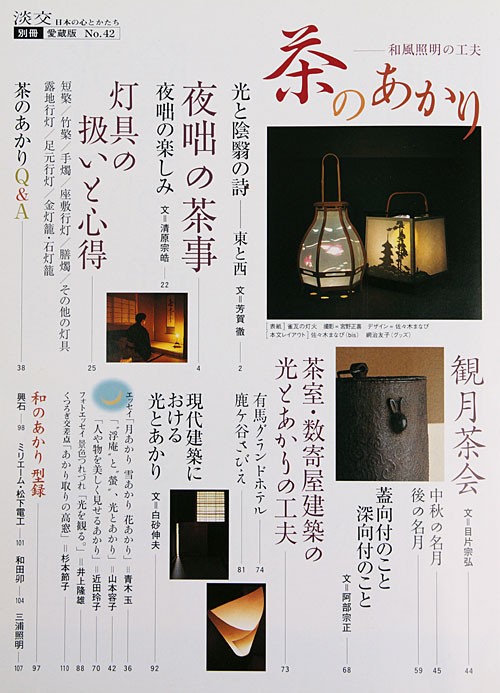 淡交 日本の心とかたち
別冊 愛蔵版 No.42
和風照明の工夫
茶のあかり
表紙 雀瓦の灯火 撮影=宮野正喜 デザイン=佐々木まなび
本文レイアウト 佐々木まなび(bis) 網治友子(グッズ)
光と陰翳の詩――東と西 文=芳賀 徹 2
夜咄の茶事 4
夜咄の楽しみ 文=清原宗皓 22
灯具の
扱いと心得 25
短檠/竹檠/手燭/座敷行灯/膳燭/その他の灯具
露地行灯/足元行灯/金灯籠・石灯籠
茶のあかりQ&A 38
観月茶会 文=目片宗弘 44
中秋の名月 45
後の名月 59
蓋向付のこと
深向付のこと 文=阿部宗正 68
茶室・数寄屋建築の
光とあかりの工夫 73
有馬グランドホテル 74
鹿ケ谷さびえ 81
現代建築に
おける
光とあかり 文=白砂伸夫 92
エッセイ「月あかり 雪あかり 花あかり」=青木 玉 36
「「浮庵」と、螢、光とあかり」=山本容子 42
「人や物を美しく見せるあかり」=近田玲子 70
フォトエッセイ・景色つれづれ「光を観る。」=井上隆雄 88
くつろぎ交差点「あかり取りの高窓」=杉本節子 110
和のあかり 型録 97
興石―98 ミリエーム・松下電工―101 和田卯―104 三浦照明―107